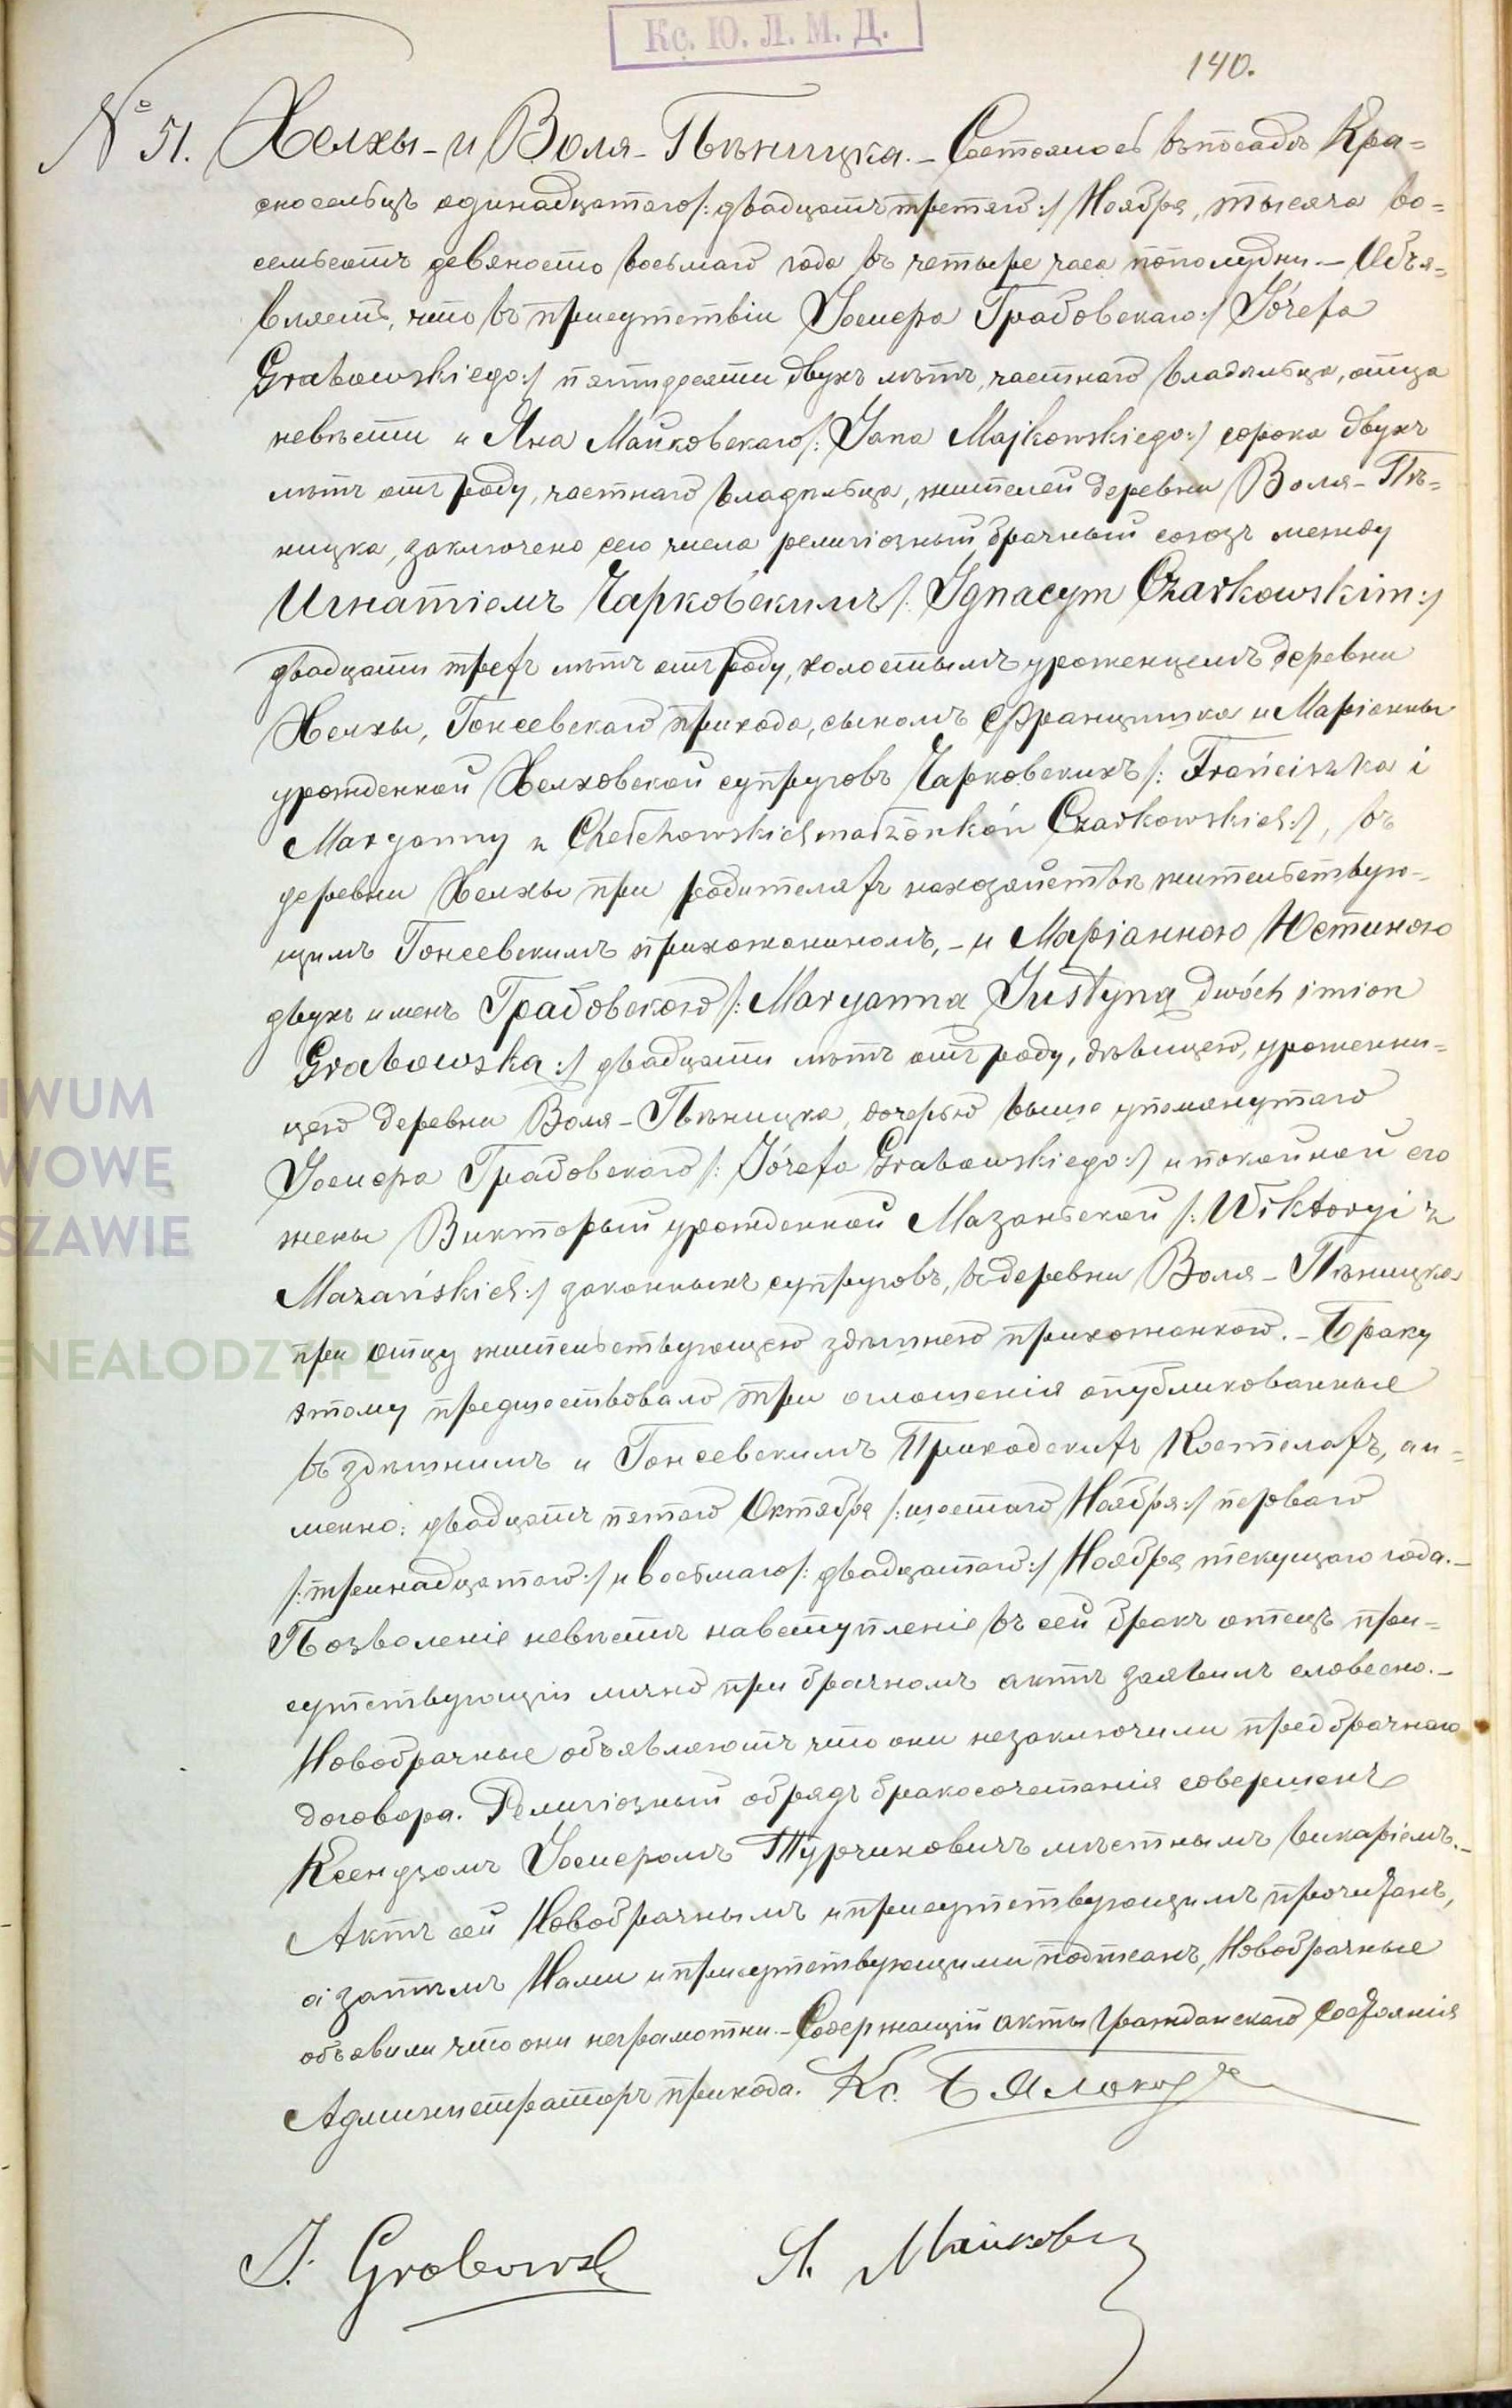 Кс. Ю. Л. М. Д.
140.
№ 51. Хелхы-и Воля-Пѣницка. - Состоялось въ посадѣ Кра=
сносельцъ одинадцатаго /:двадцать третяго:/ Ноября, тысяча во=
семьсотъ девяносто восьмаго года въ четыре часа пополудни. - Объя=
вляемъ, что въ присутствіи Іосифа Грабовскаго :/ Józefa
Grabowskiego :/ пятидесяти двухъ лѣтъ, частнаго владѣльца, отца
невѣсты и Яна Майковскаго /: Jana Majkowskiego :/ сорока двухъ
лѣтъ отъ роду, частнаго владѣльца, жителей деревни Воля-Пѣ=
ницка, заключено сего числа религіозный брачный союзъ между
Игнатіемъ Чарковскимъ /: Ignacym Czarkowskim :/
двадцати трехъ лѣтъ отъ роду, холостымъ уроженцемъ деревни
Хелхы, Гонсевскаго прихода, сыномъ Францишка и Маріанны
урожденной Хелховской супруговъ Чарковскихъ /: Franciszka i
Maryanny z Chełchowskich małżonków Czarkowskich :/, въ
деревни Хелхы при родителяхъ на хозяйствѣ жительствую-
щимъ Гонсевскимъ прихожаниномъ, - и Маріанною Юстиною
двухъ именъ Грабовскою /: Maryanna Justyną dwóch imion
Grabowska :/ двадцати лѣтъ отъ роду, дѣвицею, уроженни=
цею деревни Воля-Пѣницка, дочерью выше упомянутаго
Іосифа Грабовскаго /: Józefa Grabowskiego :/ и покойной его
жены Викторыи урожденной Мазаньской /: Wiktoryi z
Mazańskich :/ законныхъ супруговъ, въ деревни Воля-Пѣницка
при отцу жительствующею здѣшнею прихожанкою. - Браку
этому предшествовало три оглошенія опубликованные
въ здѣшнимъ и Гонсевскимъ Приходскихъ Костелахъ, а и=
менно: двадцать пятаго Октября /: шестаго Ноября :/ перваго
/: тринадцатаго :/ и восьмаго /: двадцатаго :/ Ноября текущаго года. -
Позволеніе невѣстѣ на вступленіе въ сей бракъ отецъ при=
сутствующій лично при брачномъ актѣ заявилъ словесно. -
Новобрачные объявляютъ что они незаключили предбрачнаго
договора. Религіозный обрядъ бракосочетанія совершенъ
Ксендзомъ Іосифомъ Турчиновичъ мѣстнымъ викаріемъ. -
Актъ сей Новобрачнымъ и присутствующимъ прочитанъ,
а затѣмъ Нами и присутствующими подписанъ, Новобрачные
объявили что они неграмотны. - Содержащій акты Гражданскаго Состоянія
Администраторъ прихода. Кс.
J. Grabowski Я. Майковскі
IWUM
WOWE
SZAWIE
ENEALODZY.PL